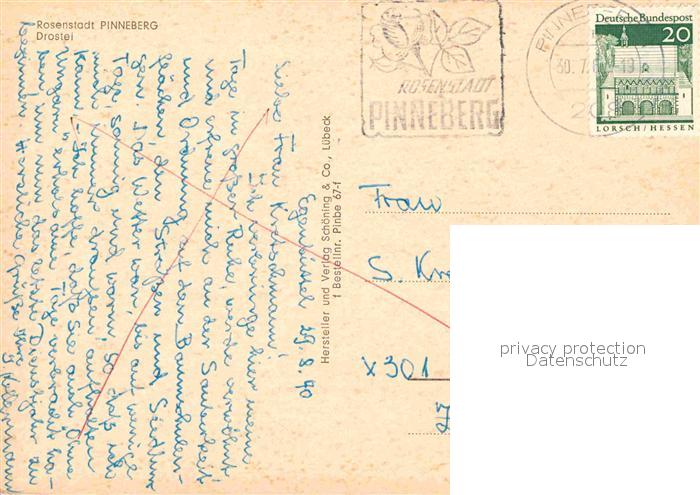 Rosenstadt PINNEBERG
Drostei
ROSENSTADT
PINNEBERG
PINNEBERG
30.7.
Deutsche Bundespost
20
LORSCH/HESSEN
Hersteller und Verlag Schöning & Co., Lübeck
f Bestellnr. Pinbe 67-f
29.8.
Liebe Frau Kretschmann!
Ich verbringe hier meine
Tage in großer Ruhe, werde verwöhnt
und erfreue mich an der Sauberkeit
und Ordnung auf den Baumschulen-
flächen, den Straßen und Siedlun-
gen. Das Wetter war, bis auf wenige
Tage, sonnig und warm, so daß ich
mich immer draußen aufhalten
kann. Ich hoffe, daß Sie auch Ihre
Ungarn Tage verbracht ha-
ben, um nun das letzte Dienstjahr zu
beginnen. Herzliche Grüße Ihre
Frau
S. Kre
X301
privacy protection
Datenschutz